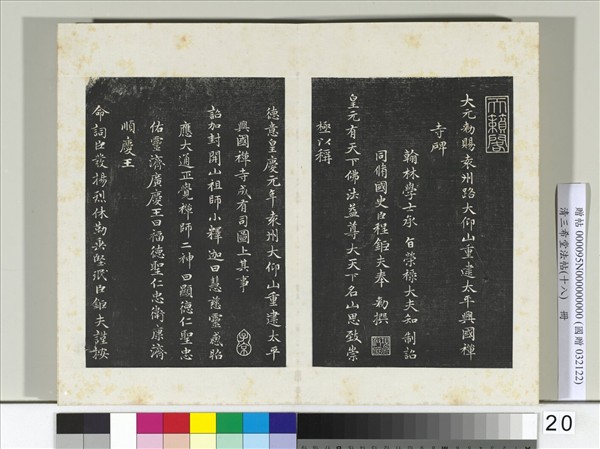 天籟閣
大元勑賜袁州路大仰山重建太平興國禪
寺碑
翰林學士承 旨榮祿大夫知 制誥
同脩國史臣程鉅夫奉 勑撰
皇元有天下佛法益尊大天下名山思致崇
極以稱
德意皇慶元年袁州大仰山重建太平
興國禪寺成有司圖上其事
詔加封開山祖師小釋迦曰慧慈靈感昭
應大通正覺禪師二神曰顯德仁聖忠
佑靈濟廣慶王曰福德聖仁忠衛康濟
順慶王
命詞臣發揚烈休勒乘堅珉臣鉅夫謹按
贈帖 000095N000000000 (國贈 032122)
清三希堂法帖(十八) 冊
20